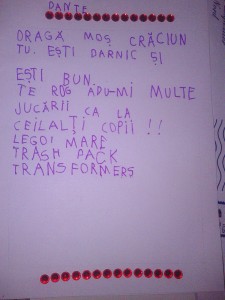 DANTE
DRAGĂ MOȘ CRĂCIUN
TU. EȘTI DARNIC ȘI
EȘTI BUN.
TE ROG ADU-MI MULTE
JUCĂRII CA LA
CEILALȚI COPII !!
LEGO! MARE
TRASH PACK
TRANSFORMERS